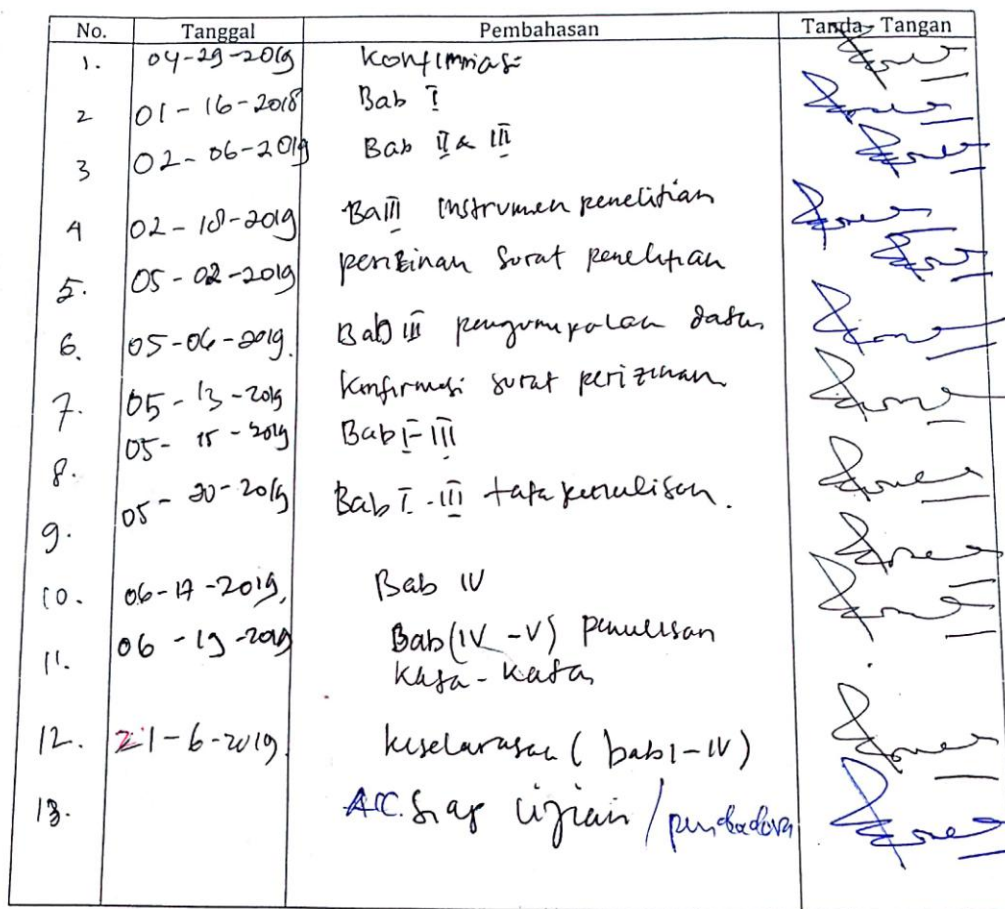 No. Tanggal Pembahasan Tanda-Tangan
1. 04-29-2019 Konfirmasi
2 01-16-2018 Bab I
3 02-06-2019 Bab II & III
4 02-18-2019 BaIII instrumen penelitian
5. 05-02-2019 perizinan surat penelitian
6. 05-06-2019. Bab III pengumpulan data
7. 05-13-2019 Konfirmasi surat perizinan
8. 05-15-2019 Bab I-III
9. 05-20-2019 Bab I-III tata penulisan.
10. 06-17-2019, Bab IV
11. 06-19-2019 Bab (IV-V) penulisan
Kata-Kata
12. 21-6-2019. keselarasan (bab I-IV)
13. ACC. Siap Ujian /